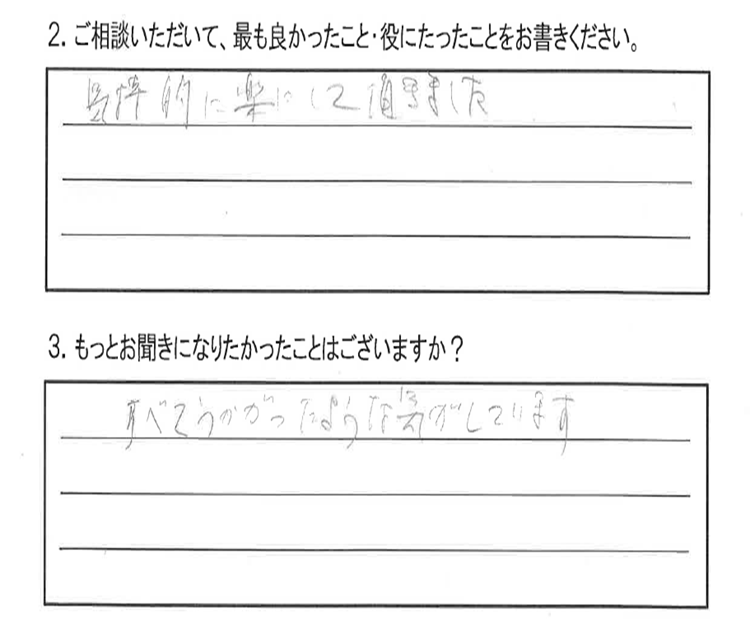 2. ご相談いただいて、最も良かったこと・役にたったことをお書きください。
的に楽にして頂きました
3. もっとお聞きになりたかったことはございますか？
すべてうかがったような気がしています